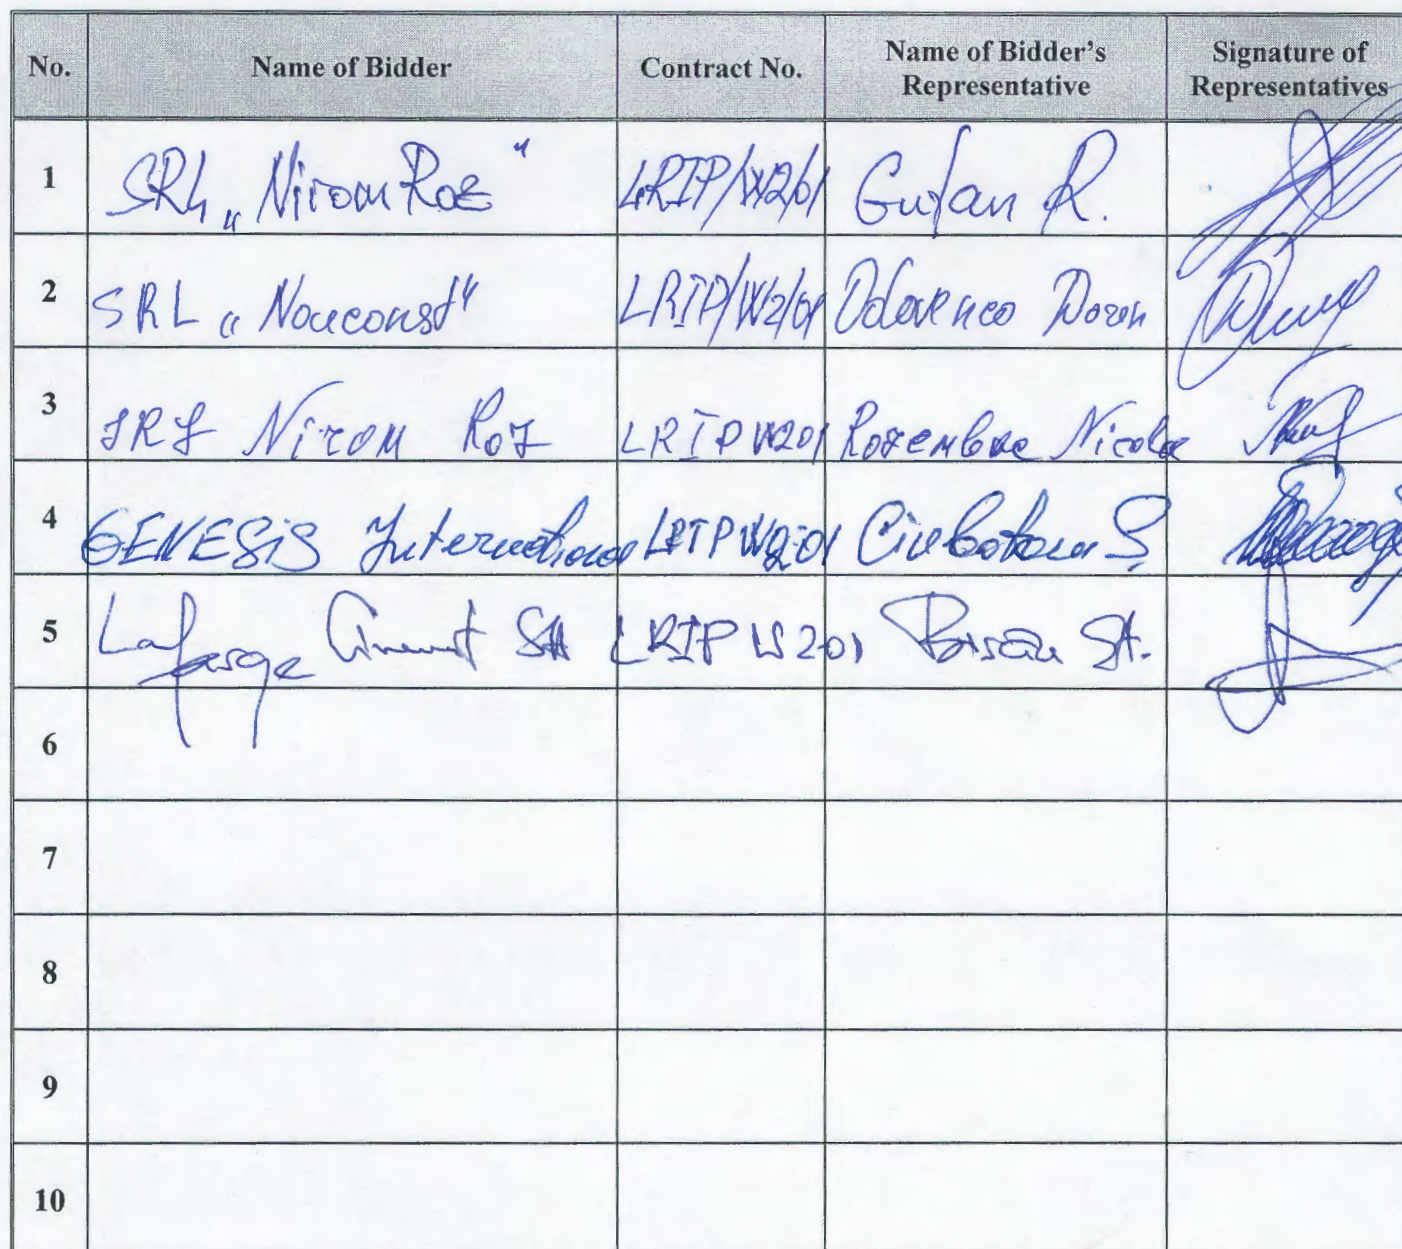 No. Name of Bidder Contract No. Name of Bidder's Representative Signature of Representatives
1 SRL „Nirom Roz" LRIP/W2/01 Guțan R.
2 SRL „Nouconst" LRIP/W2/01 Odovenco Doron
3 SRL Nirom Roz LRIP W201 Rozembac Nicolae
4 GENESiS International LRIP W2-01 Ciubotaru S.
5 Lafarge Ciment SA LRIP W201 St.
6
7
8
9
10